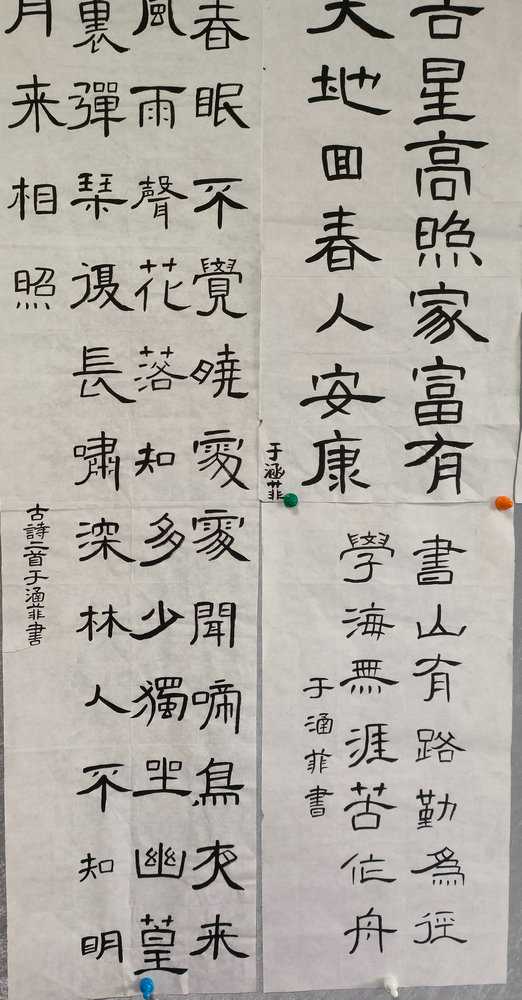 吉星高照家富有
大地回春人安康
于涵菲
書山有路勤為徑
學海無涯苦作舟
于涵菲書
春眠不覺曉處處聞啼鳥夜来
風雨聲花落知多少獨坐幽篁
裏彈琴復長嘯深林人不知明
月来相照
古詩二首于涵菲書